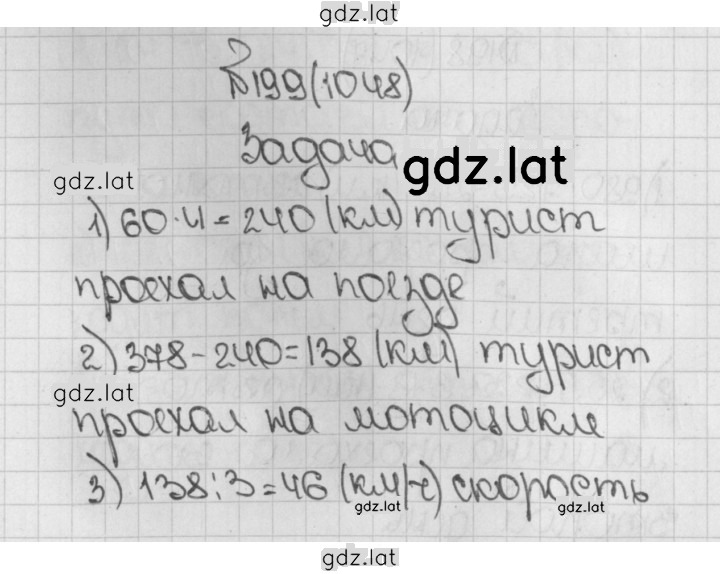 gdz.lat
№199(1048)
Задача
gdz.lat
gdz.lat
1) 60·4=240 (км) турист
проехал на поезде
2) 378-240=138 (км) турист
gdz.lat
проехал на мотоцикле
3) 138:3=46 (км/ч) скорость
gdz.lat
gdz.lat
gdz.lat